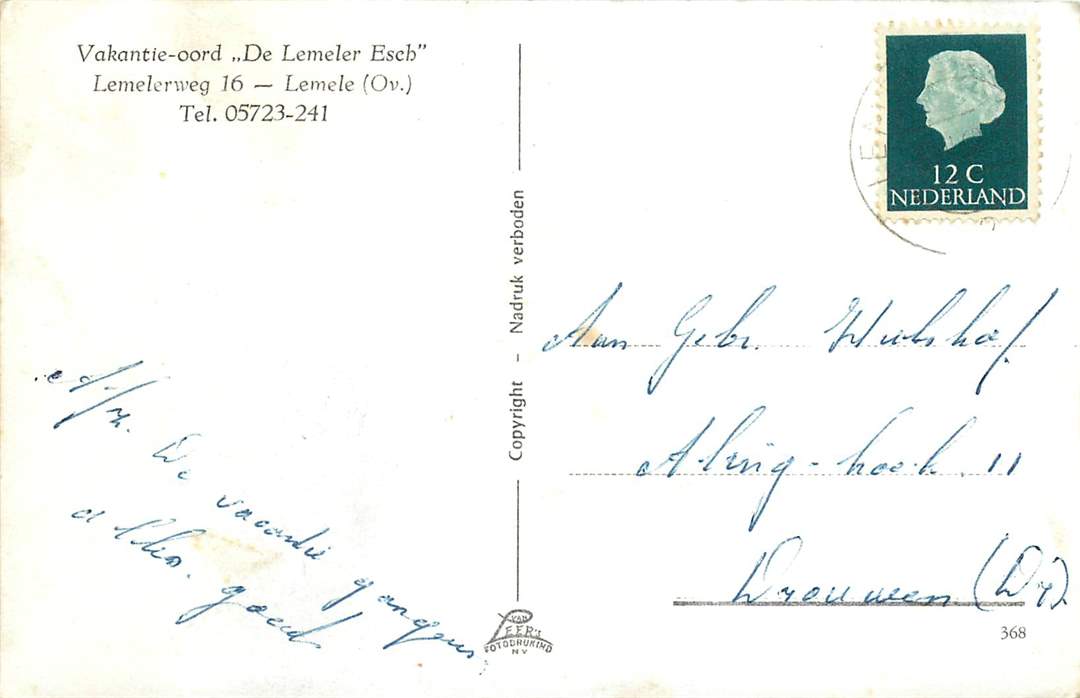 Vakantie-oord „De Lemeler Esch”
Lemelerweg 16 — Lemele (Ov.)
Tel. 05723-241
12 C
NEDERLAND
Copyright - Nadruk verboden
Aan Gebr. Hulshof
Alring-hoek 11
Drouwen (Dr)
A/z. De vacantie gangers
alles goed
VAN
LEER'S
FOTODRUKIND
NV
368